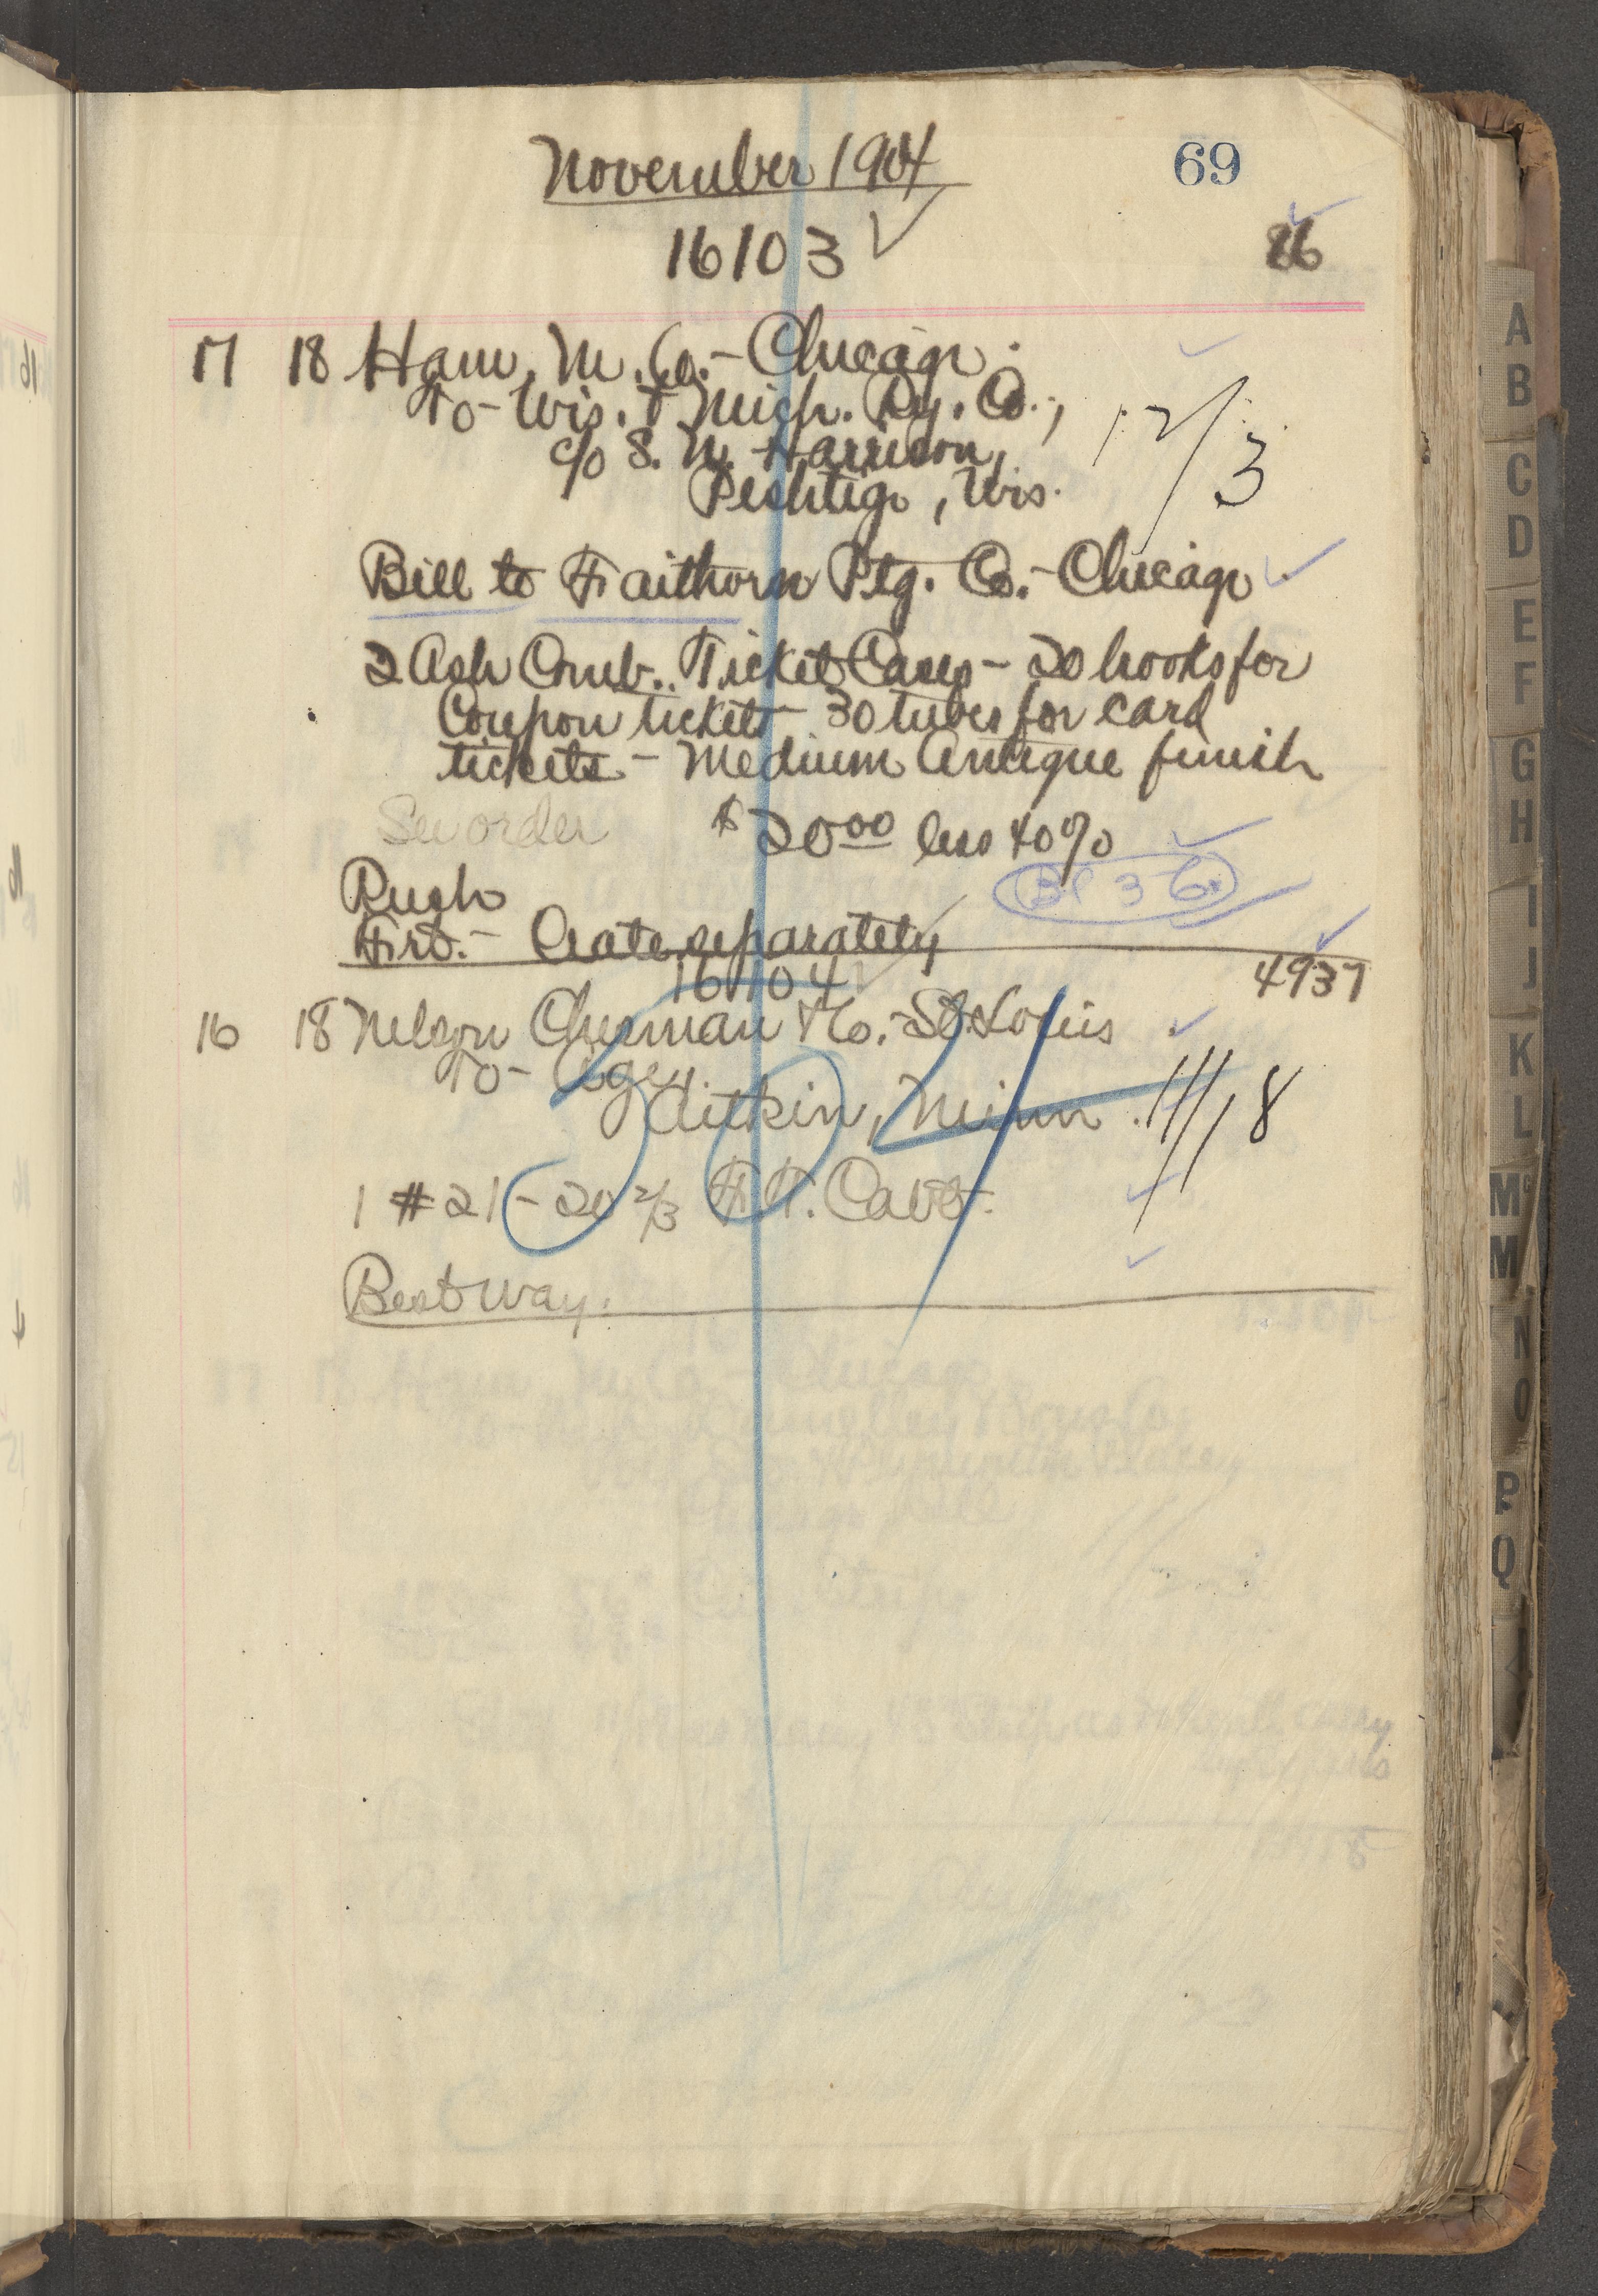 November 1904
69
16103
86
17 18 Ham. M. Co. - Chicago.
To - Wis. & Mich. Ry. Co.,
c/o S. N. Harrison,
Peshtigo, Wis.
12/3
Bill to Faithorn Ptg. Co. - Chicago.
2 Ash Comb. Ticket Cases - 20 hooks for
Coupon tickets - 30 tubes for card
tickets - Medium Antique finish
See order $20.00 less 40%
Rush
Frt. - Crate separately
16104
4937
16 18 Nelson Chesman & Co. - St. Louis
To - Age,
Aitkin, Minn.
11/18
1 #21 - 20 2/3 Cabt.
Best way.
A
B
C
D
E
F
G
H
I
J
K
L
Mc
M
N
O
P
Q